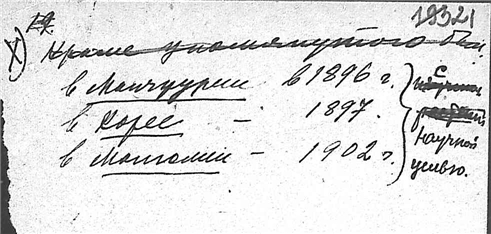 19321
х) Кроме упомянутого был.
в Манчуурии в 1896 г.
в Корее – 1897.
в Монголии – 1902 г.
с
научной
целью.